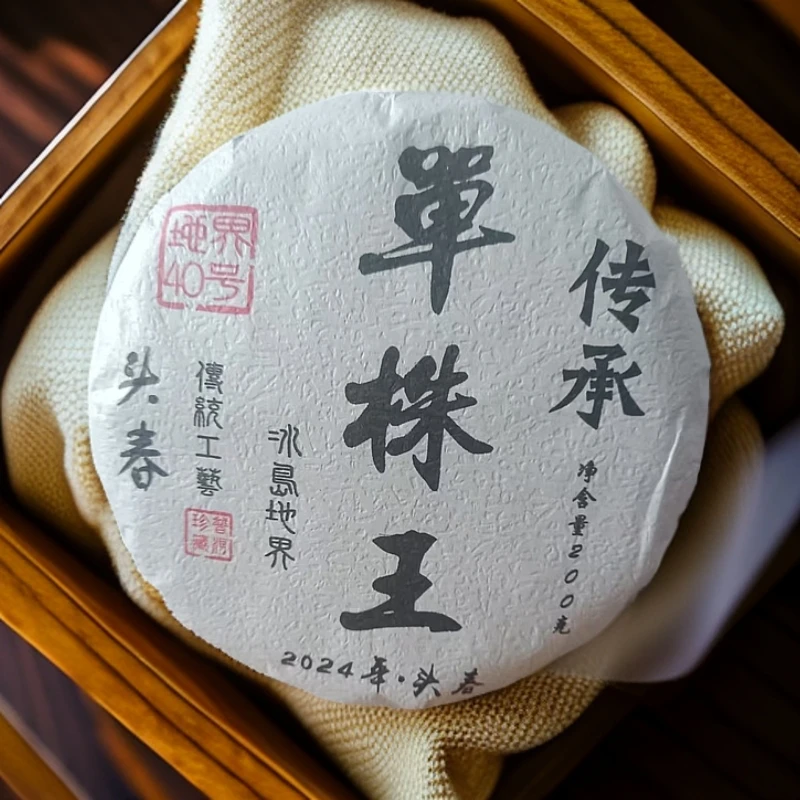 传承
净含量200克
單株王
冰島地界
傳統工藝
头春
界号
地40
普洱
珍藏
2024年·头春